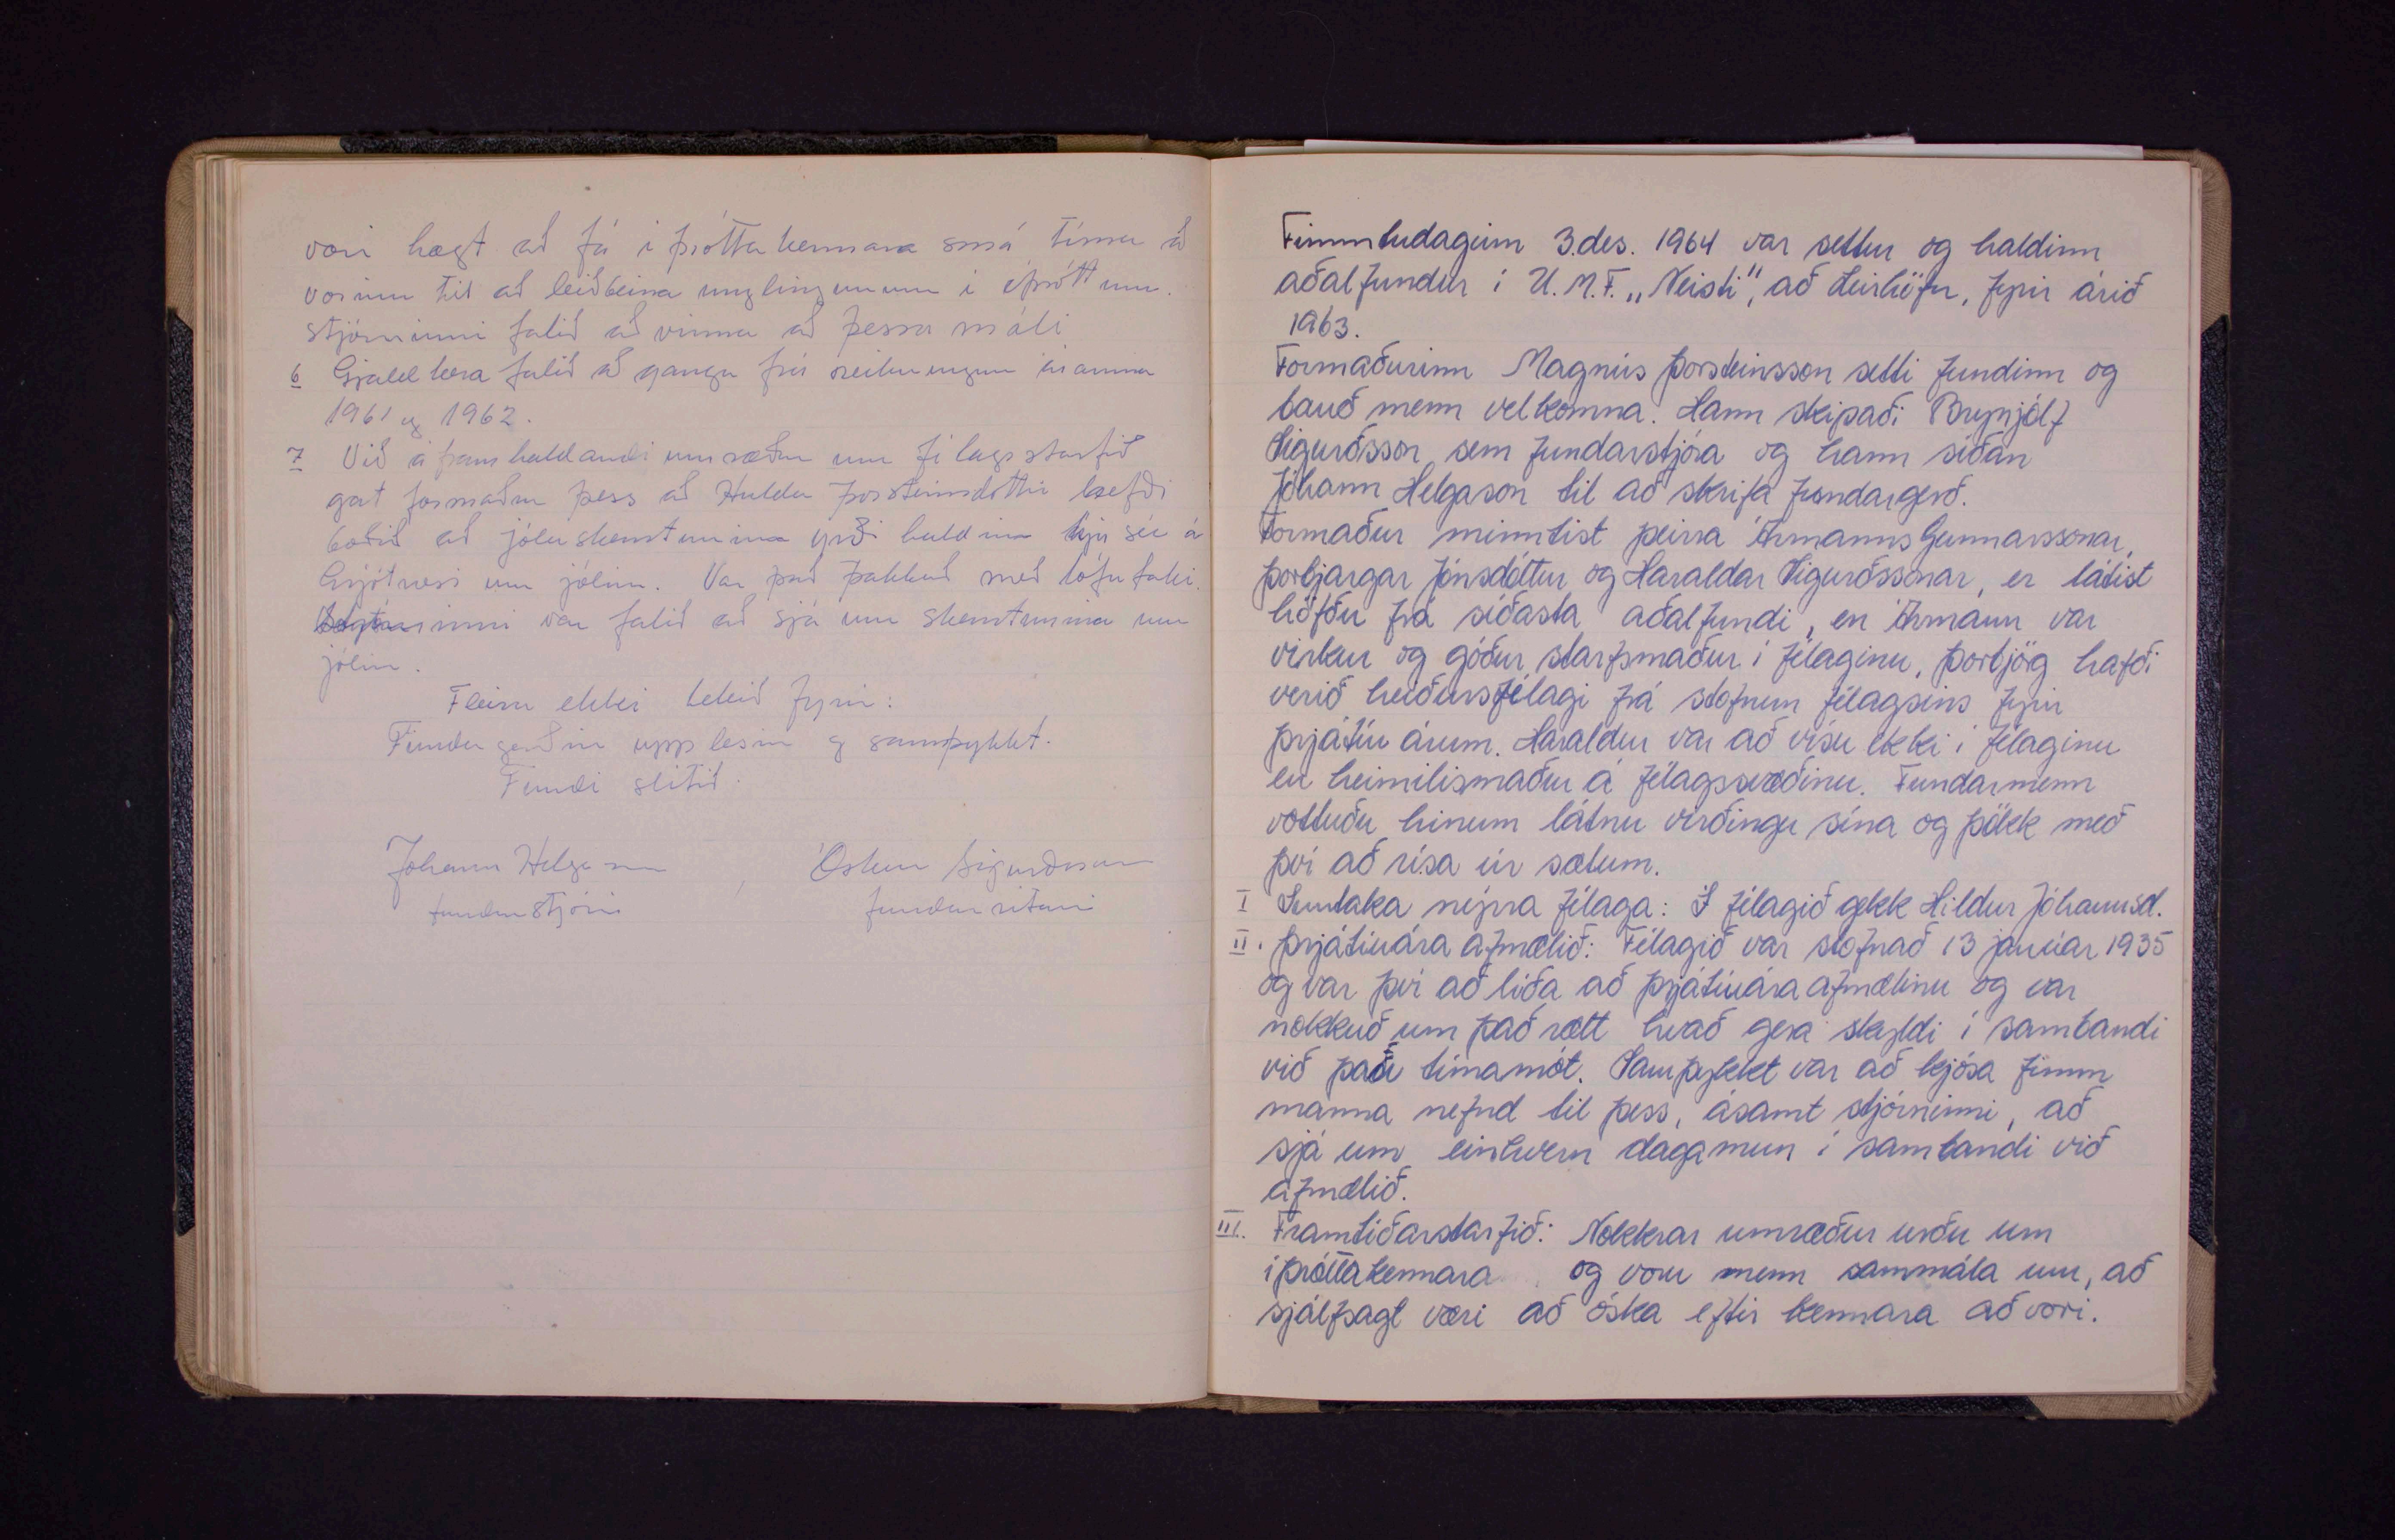 væri hægt að fá íþróttakennara smá tíma á
vorinn til að leiðbeina unglingunum í íþróttum.
stjórninni falið að vinna að þessu máli
6 Gjaldkera falið að ganga frá reikningum áranna
1961 og 1962.
7 Við áframhaldandi umræður um félagsstarfið
gat formaður þess að Hulda Þorsteinsdóttir hefði
boðið að jólaskemtunina yrði haldin hjá sér á
Grjótnesi um jólin. Var það þakkað með lófataki.
inni var falið að sjá um skemtunina um
jólin.
Fleira ekki tekið fyrir:
Fundargerðin upplesin og samþykkt.
Fundi slitið.
Jóhann Helgason , Óskar Sigurðsson
fundarstjóri fundarritari
Fimmtudaginn 3. des. 1964 var settur og haldinn
aðalfundur í U.M.F. „Neisti", að Leirhöfn, fyrir árið
1963.
Formaðurinn Magnús Þorsteinsson setti fundinn og
bauð menn velkomna. Hann skipaði Brynjólf
Sigurðsson sem fundarstjóra og hann síðan
Jóhann Helgason til að skrifa fundargerð.
Formaður minntist þeirra Ármanns Gunnarssonar,
Þorbjargar Jónsdóttur og Haraldar Sigurðssonar, er látist
höfðu frá síðasta aðalfundi, en Ármann var
virkur og góður starfsmaður í félaginu, Þorbjög hafði
verið heiðursfélagi frá stofnun félagsins fyrir
þrjátíu árum. Haraldur var að vísu ekki í félaginu
en heimilismaður á félagssvæðinu. Fundarmenn
vottuðu hinum látnu virðingu sína og þökk með
því að rísa úr sætum.
I Inntaka nýrra félaga: Í félagið gekk Hildur Jóhannsd.
II. Þrjátíuára afmælið: Félagið var stofnað 13 janúar 1935
og var því að líða að þrjátíuára afmælinu og var
nokkuð um það rætt hvað gera skyldi í sambandi
við þau tímamót. Samþykkt var að kjósa fimm
manna nefnd til þess, ásamt stjórninni, að
sjá um einhvern dagamun í sambandi við
afmælið.
III. Framtíðarstarfið: Nokkrar umræður urðu um
íþróttakennara og voru menn sammála um, að
sjálfsagt væri að óska eftir kennara að vori.